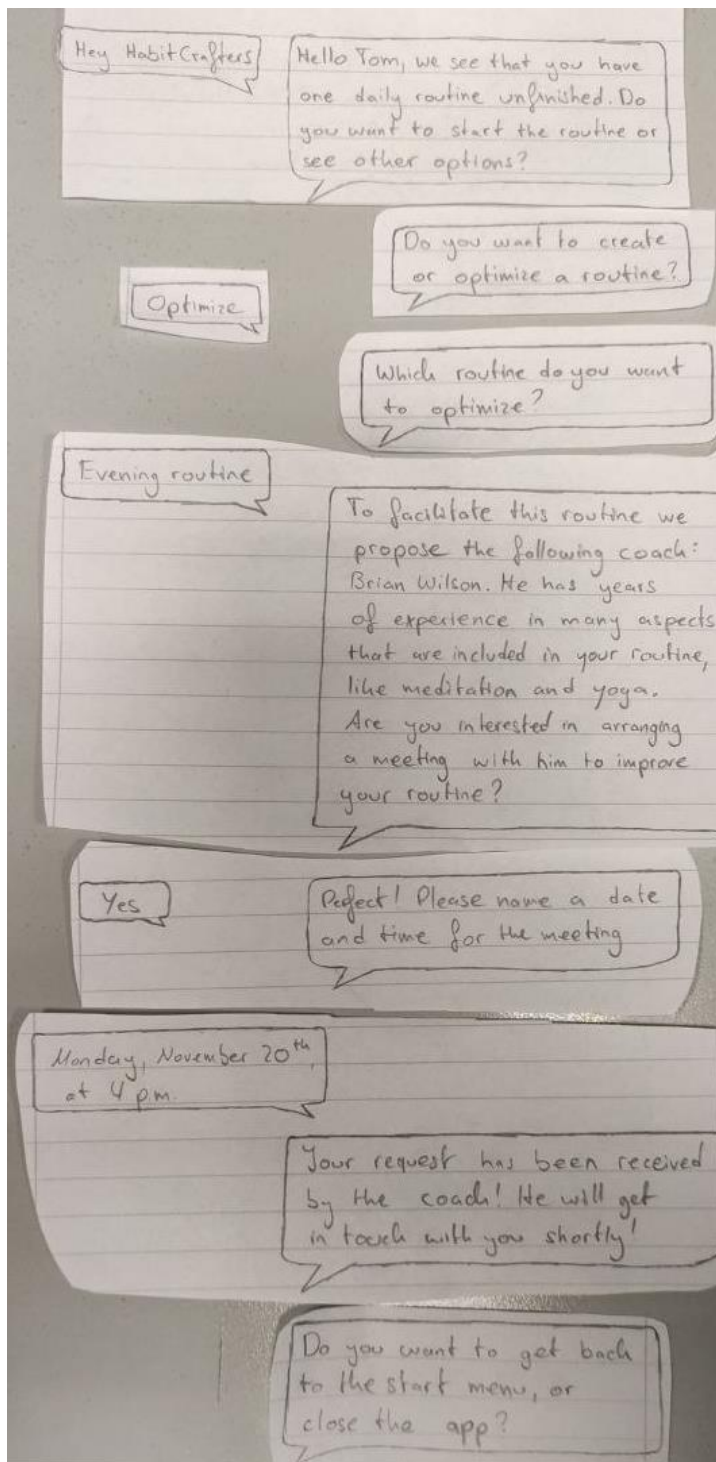 Hey HabitCrafters
Hello Tom, we see that you have
one daily routine unfinished. Do
you want to start the routine or
see other options?
Do you want to create
or optimize a routine?
Optimize
Which routine do you want
to optimize?
Evening routine
To facilitate this routine we
propose the following coach:
Brian Wilson. He has years
of experience in many aspects
that are included in your routine,
like meditation and yoga.
Are you interested in arranging
a meeting with him to improve
your routine?
Yes
Perfect! Please name a date
and time for the meeting
Monday, November 20th,
at 4 pm.
Your request has been received
by the coach! He will get
in touch with you shortly!
Do you want to get back
to the start menu, or
close the app?